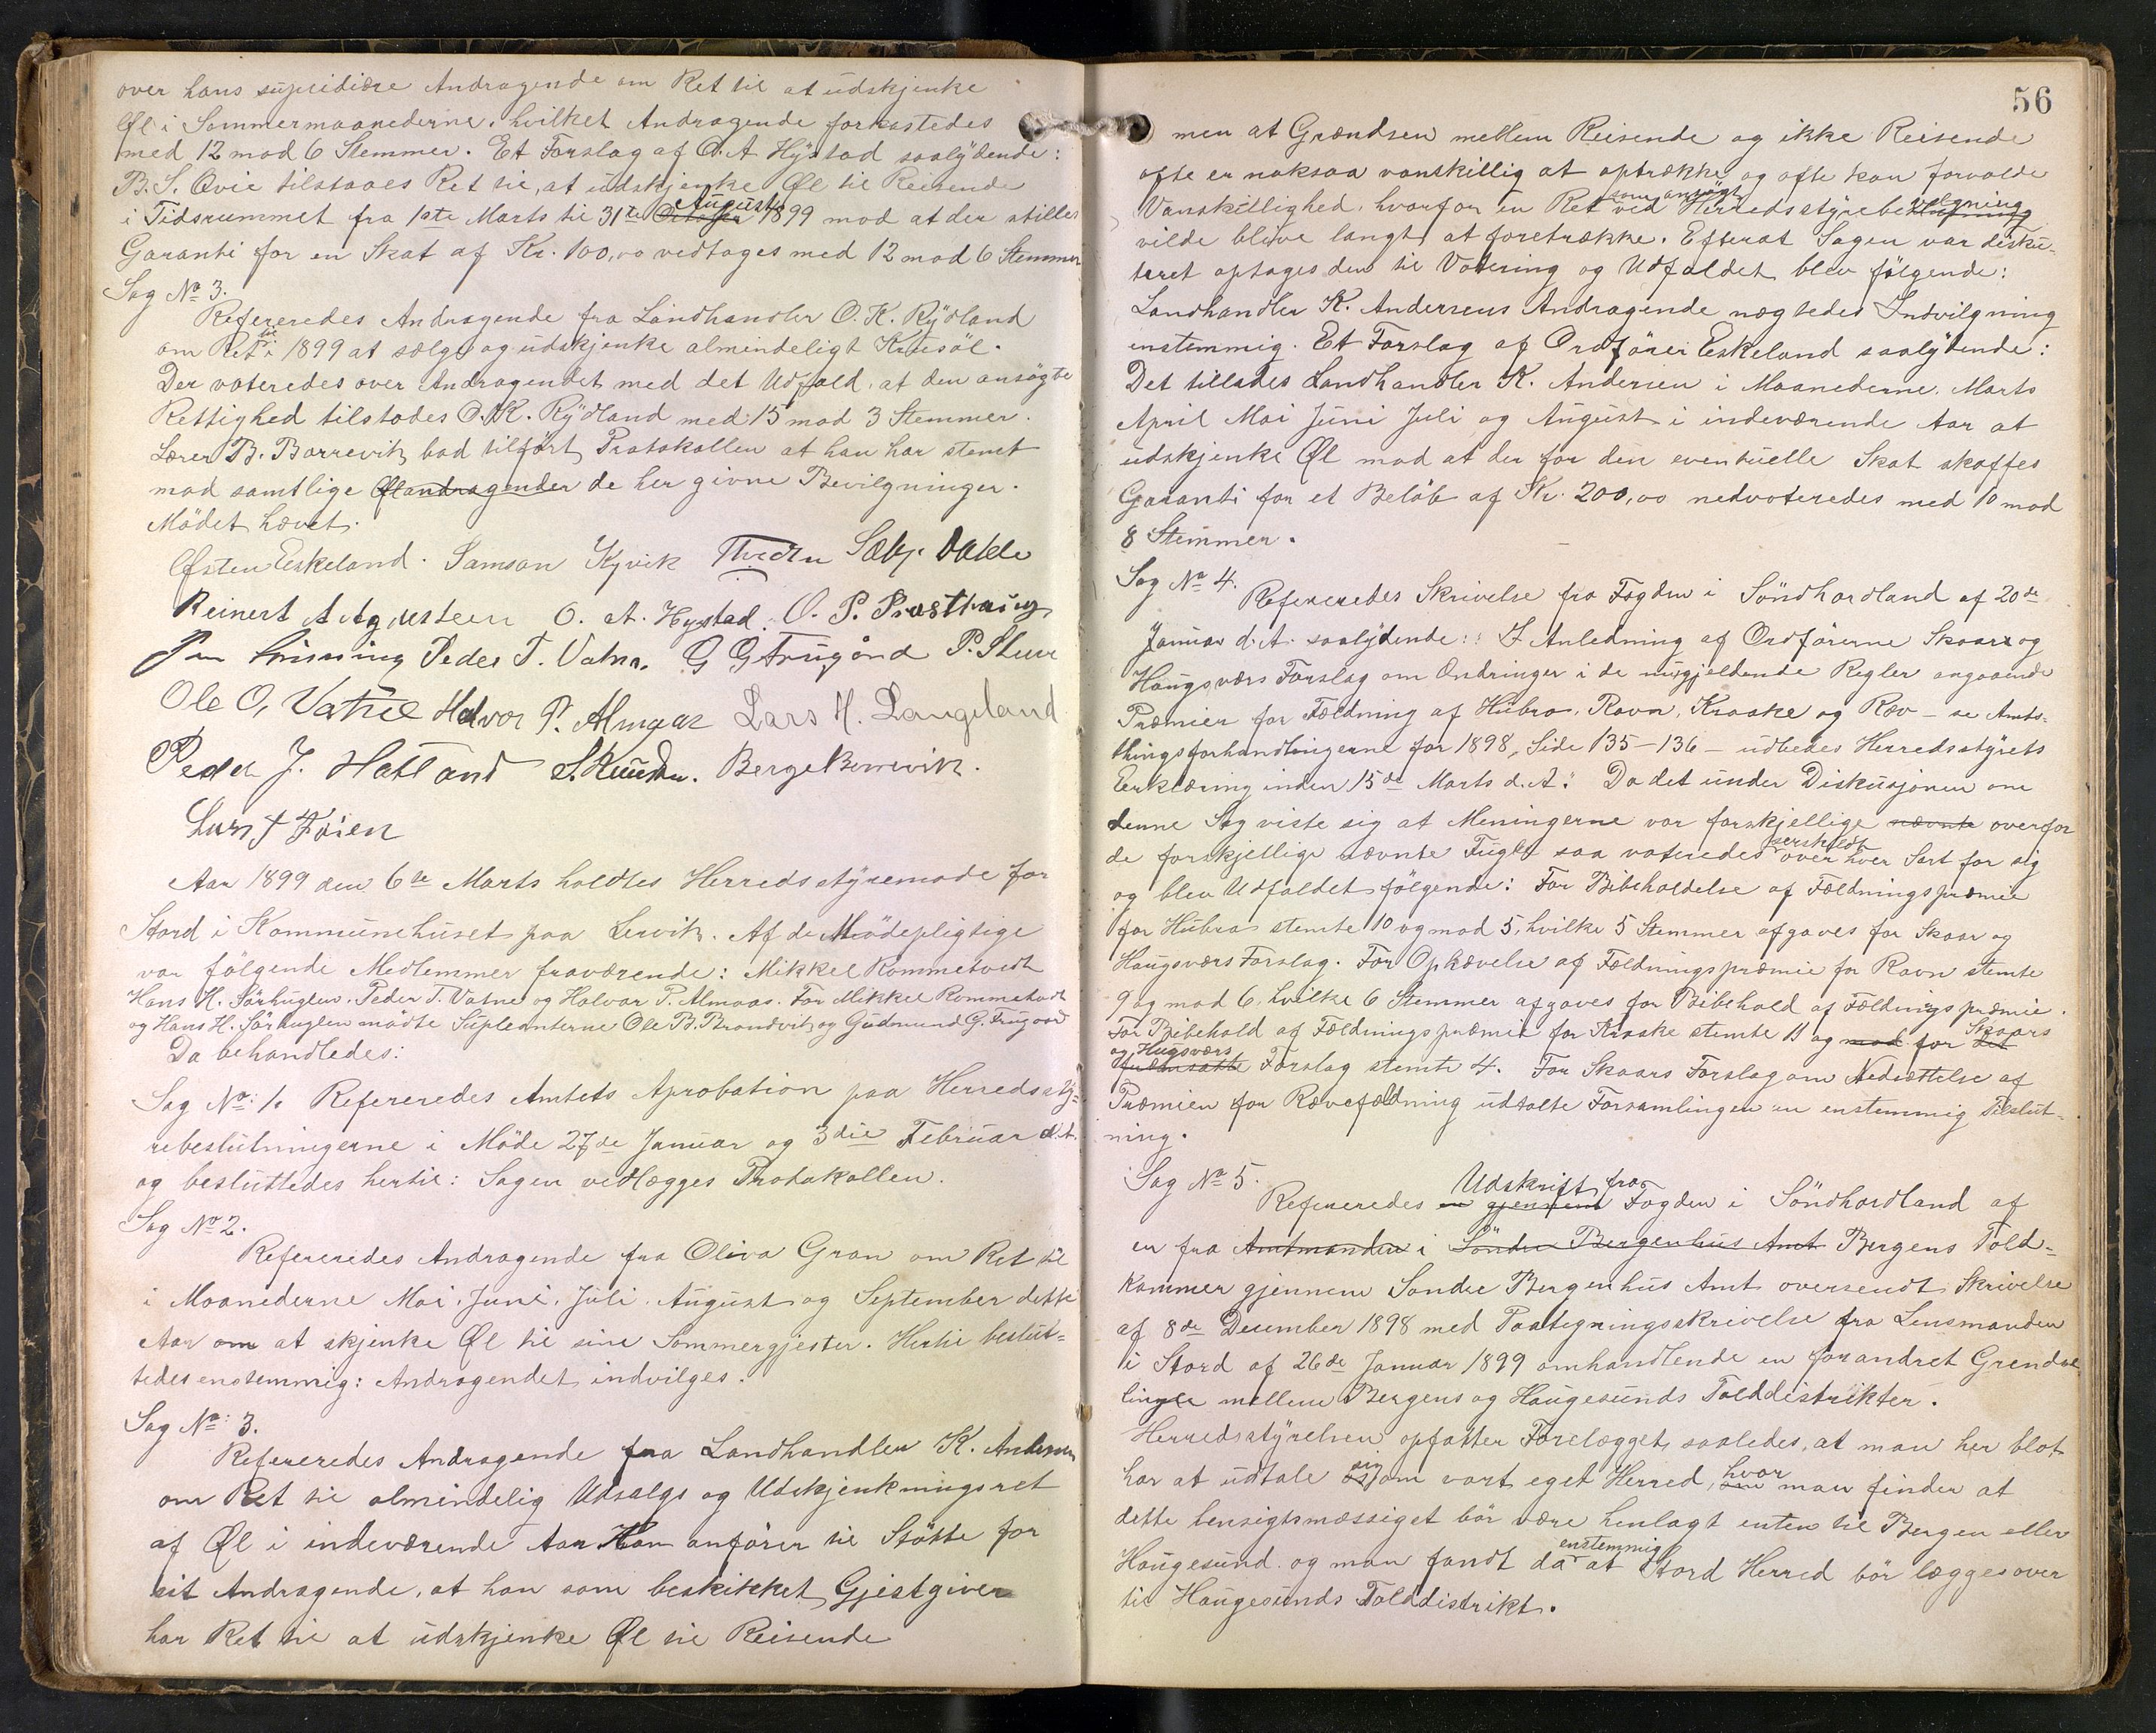 over hans supsidiære Andragende om Ret til at udskjenke
Øl i Sommermaanederne, hvilket Andragende forkastedes
med 12 mod 6 Stemmer. Et Forslag af O. A Hystad saalydende:
B. S. Ovie tilstaaes Ret til, at udskjenke Øl til Reisende
i Tidsrummet fra 1ste Marts til 31te October August 1899 mod at der stilles
Garanti for en Skat af Kr. 100,00 vedtages med 12 mod 6 Stemmer
Sag No 3.
Refereredes Andragende fra Landhandler O. K. Rydland
om Ret til i 1899 at sælge og udskjenke almindeligt Krusöl.
Der voteredes over Andragendet med det Udfald, at den ansögte
Rettighed tilstodes O. K. Rydland med 15 mod 3 Stemmer.
Lærer B. Borrevik bad tilfört Protokollen at han har stemt
mod samtlige Ølandragender de her givne Bevilgninger.
Mödet hævet.
Østen Eskeland. Samson Kyvik Sakj. Dahle
Reinert A Agdesteen O. A. Hystad. O. P. Prosthaug
Peder T. Vatna. G G Frugård P. Stuve
Ole O, Vatne Halvor P. Almaas Lars H. Langeland
Peder J. Hatland S. Knudsen. Berge Borrevik.
Lars J Föien
Aar 1899 den 6te Marts holdtes Herredsstyremöde for
Stord i Kommunehuset paa Lervik. Af de Mödepligtige
var fölgende Medlemmer fraværende: Mikkel Rommetvedt
Hans H. Sörhuglen, Peder T. Vatne og Halvor P. Almaas. For Mikkel Rommetvedt
og Hans H. Sörhuglen mödte Supleanterne Ole B. Brandvik og Gudmund G. Frugaard
Da behandledes:
Sag No: 1. Refereredes Amtets Aprobation paa Herredssty=
rebeslutningerne i Möde 27de Januar og 3die Februar d. A.
og besluttedes hertil: Sagen vedlægges Protokollen.
Sag No 2.
Refereredes Andragende fra Oliva Gran om Ret til
i Maanederne Mai, Juni, Juli, August og September dette
Aar om at skjenke Øl til sine Sommergjester. Hertil beslut=
tedes enstemmig: Andragendet indvilges.
Sag No: 3.
Refereredes Andragende fra Landhandler K. Andersen
om Ret til almindelig Udsalgs og Udskjenkningsret
af Øl i indeværende Aar Han anförer til Stötte for
sit Andragende, at han som beskikket Gjestgiver
har Ret til at udskjenke Øl til Reisende
56
men at Grændsen mellem Reisende og ikke Reisende
ofte er noksaa vanskillig at optrække og ofte kan forvolde
Vanskillighed, hvorfor en Ret som ansögt ved Herredsstyrebevilgning
vilde blive langt at foretrække. Efterat Sagen var disku=
teret optages den til Votering og Udfaldet blev fölgende:
Landhandler K. Andersens Andragende negtedes Indvilgning
enstemmig. Et Forslag af Ordförer Eskeland saalydende:
Det tillades Landhandler K. Andersen i Maanederne Marts
April Mai Juni Juli og August i indeværende Aar at
udskjenke Øl mod at der for den eventuelle Skat skaffes
Garanti for et Belöb af Kr. 200,00 nedvoteredes med 10 mod
8 Stemmer.
Sag No 4.
Refereredes Skrivelse fra Fogden i Söndhordland af 20de
Januar d. A. saalydende: "I Anledning af Ordförerne Skaars og
Haugsværs Forslag om Ændringer i de nugjeldende Regler angaaende
Præmier for Fældning af Hubro, Ravn, Kraake og Ræv - se Amts=
thingsforhandlingerne for 1898, Side 135-136 - udbedes Herredsstyrets
Erklæring inden 15de Marts d. A." Da det under Diskusjonen om
denne Sag viste sig at Meningerne var forskjellige nævnte overfor
de forskjellige nævnte Fugle saa voteredes serskildt over hver Sort for sig
og blev Udfaldet fölgende: For Bibeholdelse af Fældningspræmie
for Hubro stemte 10 og mod 5, hvilke 5 Stemmer afgaves for Skaar og
Haugsværs Forslag. For Ophævelse af Fældningspræmie for Ravn stemte
9 og mod 6, hvilke 6 Stemmer afgaves for Bibehold af Fældningspræmie.
For Bibehold af Fældningspræmie for Kraake stemte 11 og mod for det Skaars
og Hugsværs fremsatte Forslag stemte 4. For Skaars Forslag om Nedsættelse af
Præmien for Rævefældning udtalte Forsamlingen en enstemmig Tilslut=
ning.
Sag No 5.
Refereredes en gjennem Udskrift fra Fogden i Söndhordland af
en fra Amtmanden i Söndre Bergenhus Amt Bergens Told=
kammer gjennem Sondre Bergenhus Amt oversendt Skrivelse
af 8de Desember 1898 med Paategningsskrivelse fra Lensmanden
i Stord af 26de Januar 1899 omhandlende en forandret Grendse
linje mellem Bergens og Haugesunds Tolddistrikter.
Herredsstyrelsen opfatter Forelægget saaledes, at man her blot
har at udtale sig om vort eget Herred, hvor man finder at
dette hensigtsmæssiget bör være henlagt enten til Bergen eller
Haugesund og man fandt da enstemmig at Stord Herred bör lægges over
til Haugesunds Tolddistrikt.